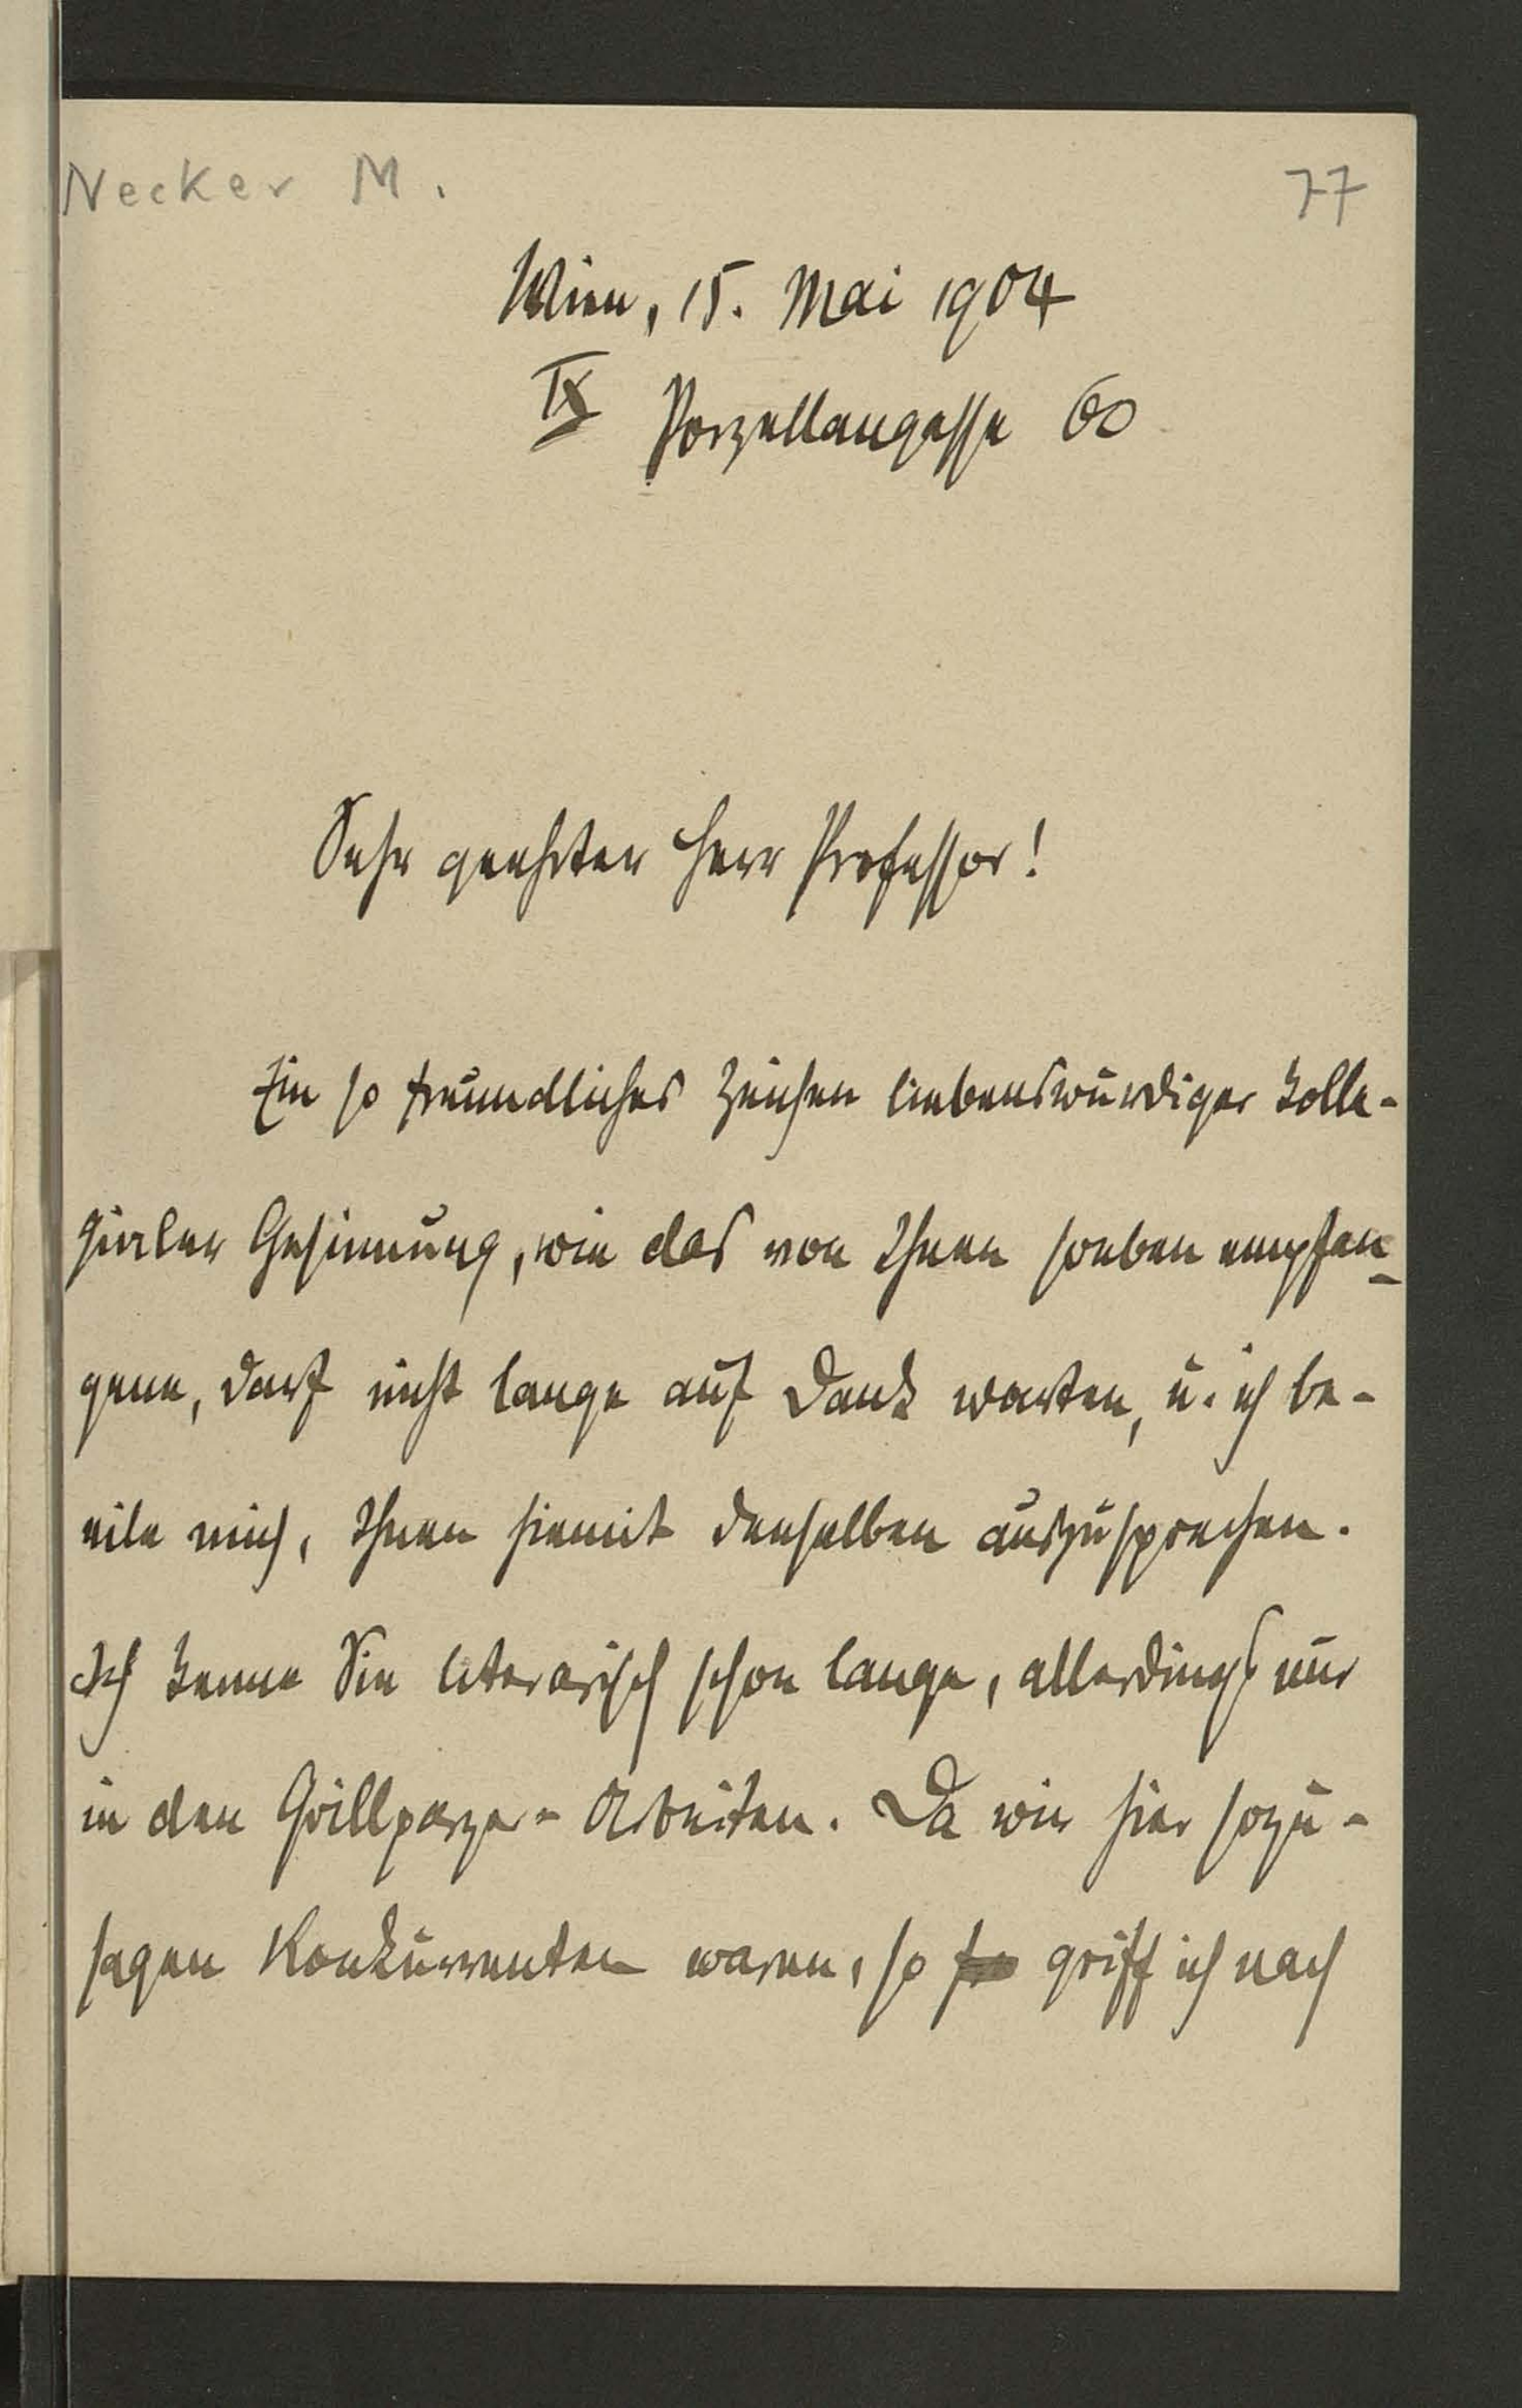 Necker M.
77
Wien, 15. Mai 1904
IX Porzellangasse 60
Sehr geehrter Herr Professor!
Ein so freundliches Zeichen liebenswürdiger Kolle-
gialer Gesinnung, wie das von Ihnen soeben empfan-
gene, darf nicht lange auf Dank warten, u. ich be-
eile mich, Ihnen hiemit denselben auszusprechen.
Ich kenne Sie literarisch schon lange, allerdings nur
in den Grillparzer-Arbeiten. Da wir hier sozu-
sagen Konkurrenten waren, so griff ich nach